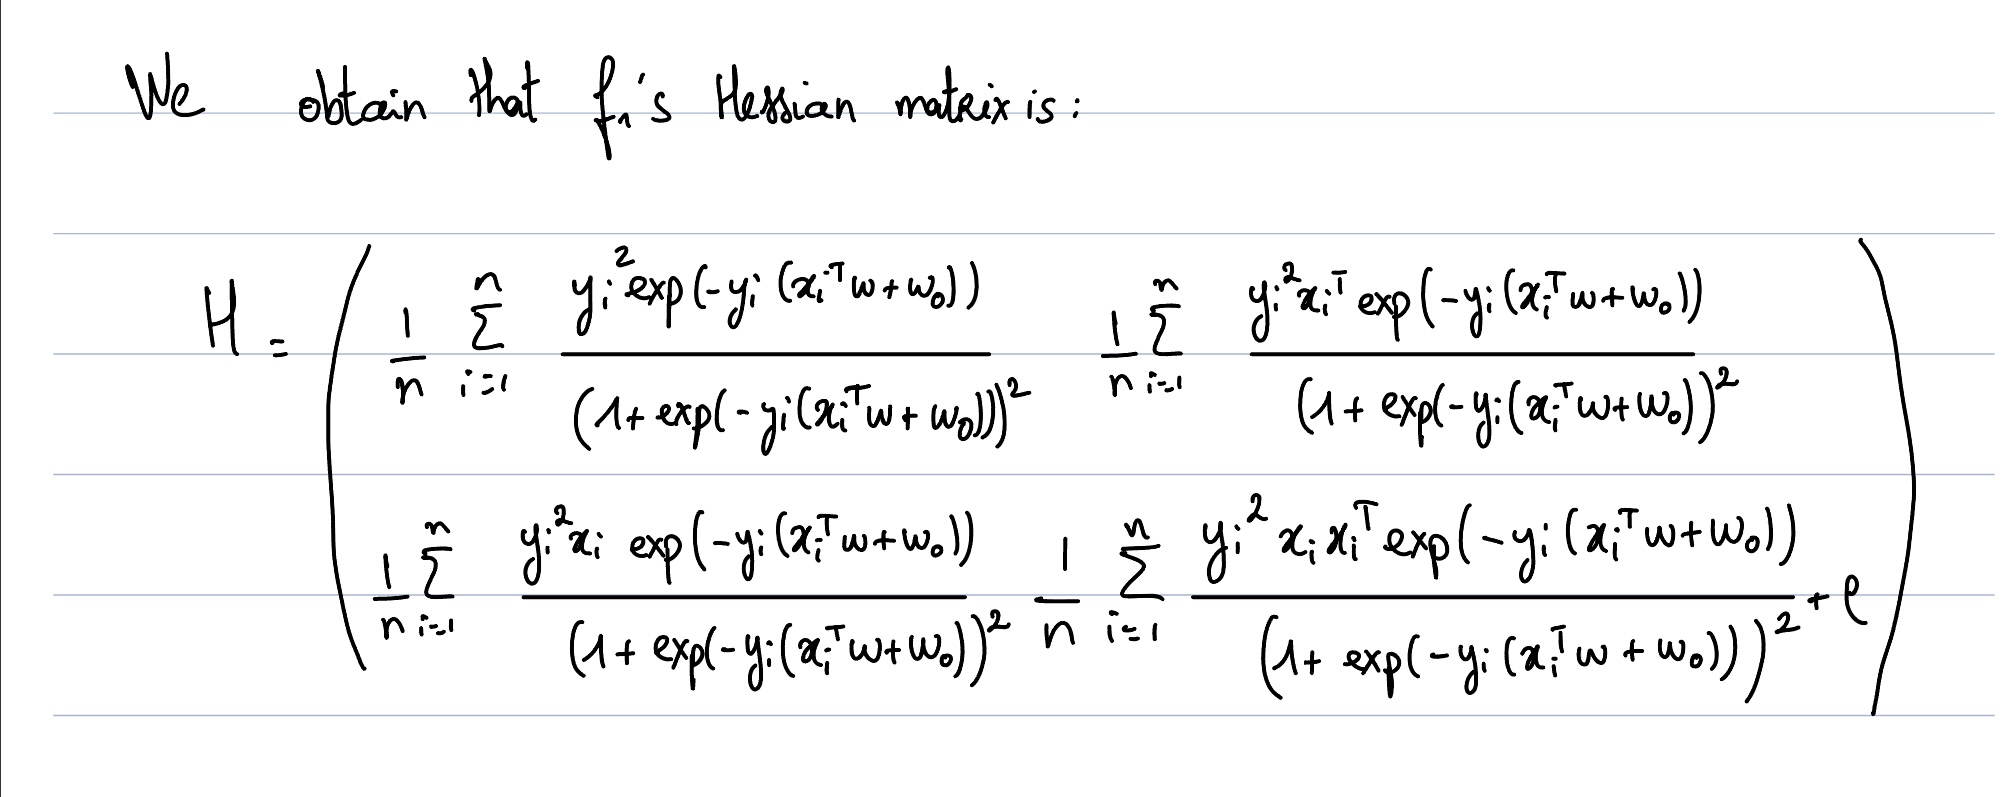 We obtain that f₁'s Hessian matrix is:
H = ( \frac{1}{n} \sum_{i=1}^{n} \frac{y_i^2 exp(-y_i (x_i^T w + w_0))}{(1 + exp(-y_i (x_i^T w + w_0)))^2} \frac{1}{n} \sum_{i=1}^{n} \frac{y_i^2 x_i^T exp(-y_i (x_i^T w + w_0))}{(1 + exp(-y_i (x_i^T w + w_0))^2}
\frac{1}{n} \sum_{i=1}^{n} \frac{y_i^2 x_i exp(-y_i (x_i^T w + w_0))}{(1 + exp(-y_i (x_i^T w + w_0))^2} \frac{1}{n} \sum_{i=1}^{n} \frac{y_i^2 x_i x_i^T exp(-y_i (x_i^T w + w_0))}{(1 + exp(-y_i (x_i^T w + w_0)))^2} + ρ )